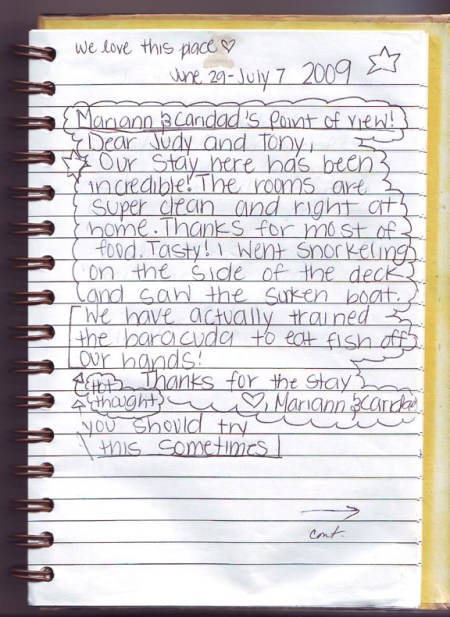 We love this place ♡
June 29-July 7 2009
Mariann & Candad's Point of view!
Dear Judy and Tony,
Our Stay here has been
incredible! The rooms are
super clean and right at
home. Thanks for most of
food. Tasty! I went Snorkeling
on the side of the deck
and saw the sunken boat.
We have actually trained
the baracuda to eat fish off
our hands!
Thanks for the stay
thought ♡, Mariann & Candad
you should try
this sometimes
cont.